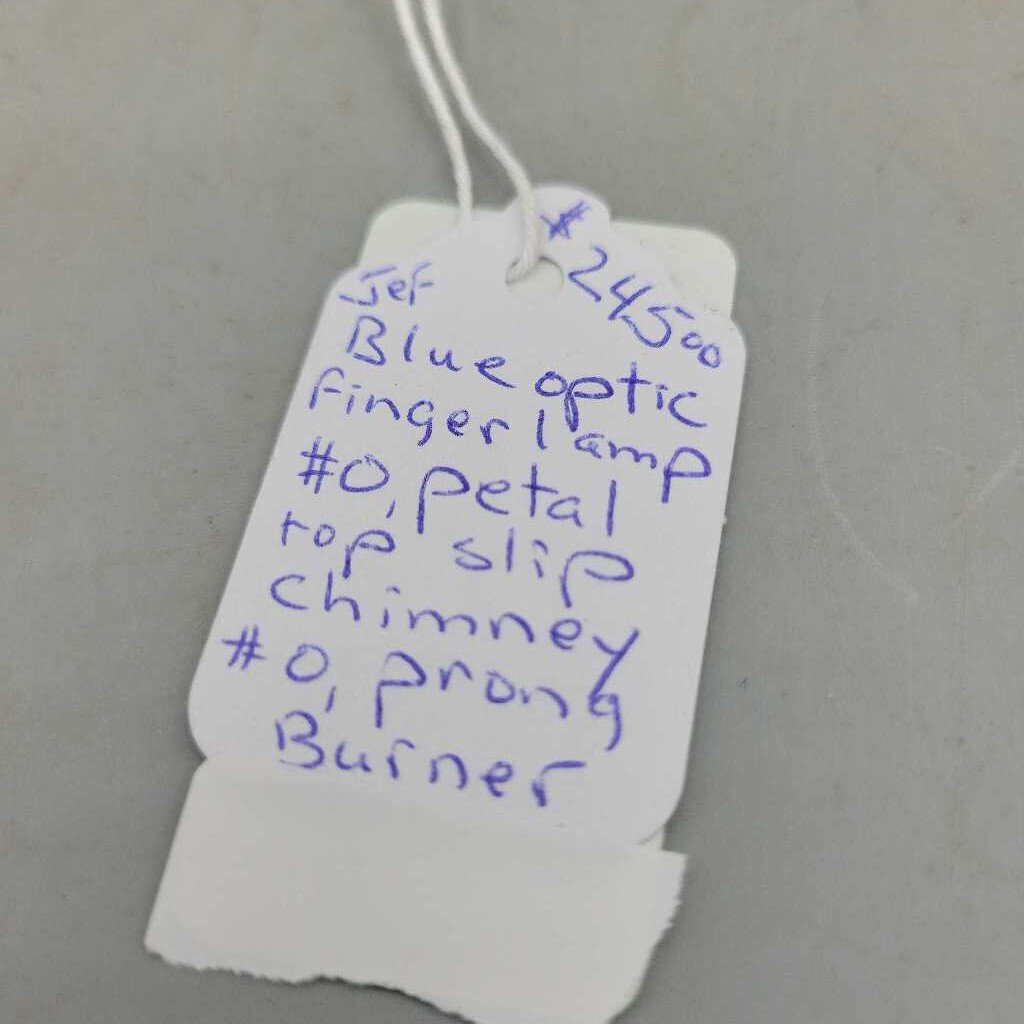 $24500
Jef
Blue optic
finger lamp
#0, petal
top slip
chimney
#0, prong
Burner